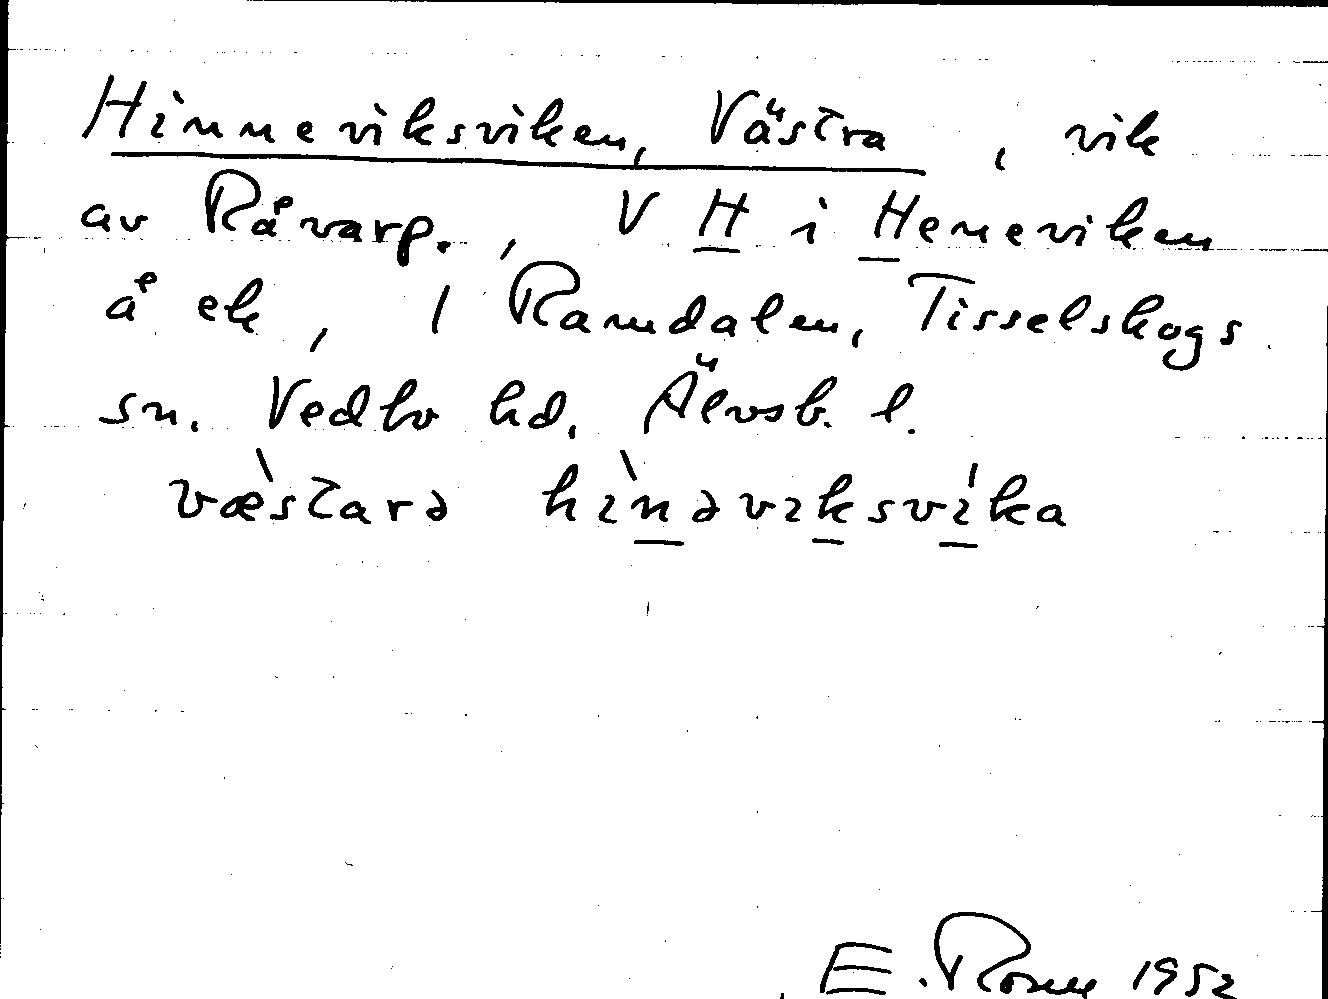 Hinneviksviken, Västra , vik
av Råvarp. , V H i Heneviken
å ek , 1 Ramdalen, Tisselskogs
sn. Vedbo hd. Älvsb. l.
væ̀starə hìnəvıksvíka
E. 1952